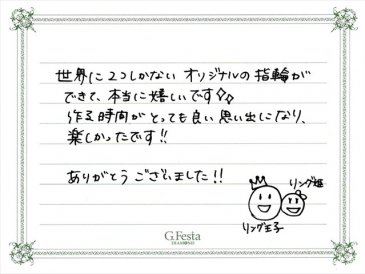 世界に2つしかない オリジナルの指輪が
できて、本当に嬉しいです✧✧
作る時間がとっても良い思い出になり、
楽しかったです!!
ありがとうございました!!
リング姫
リング王子
G.Festa
DIAMOND